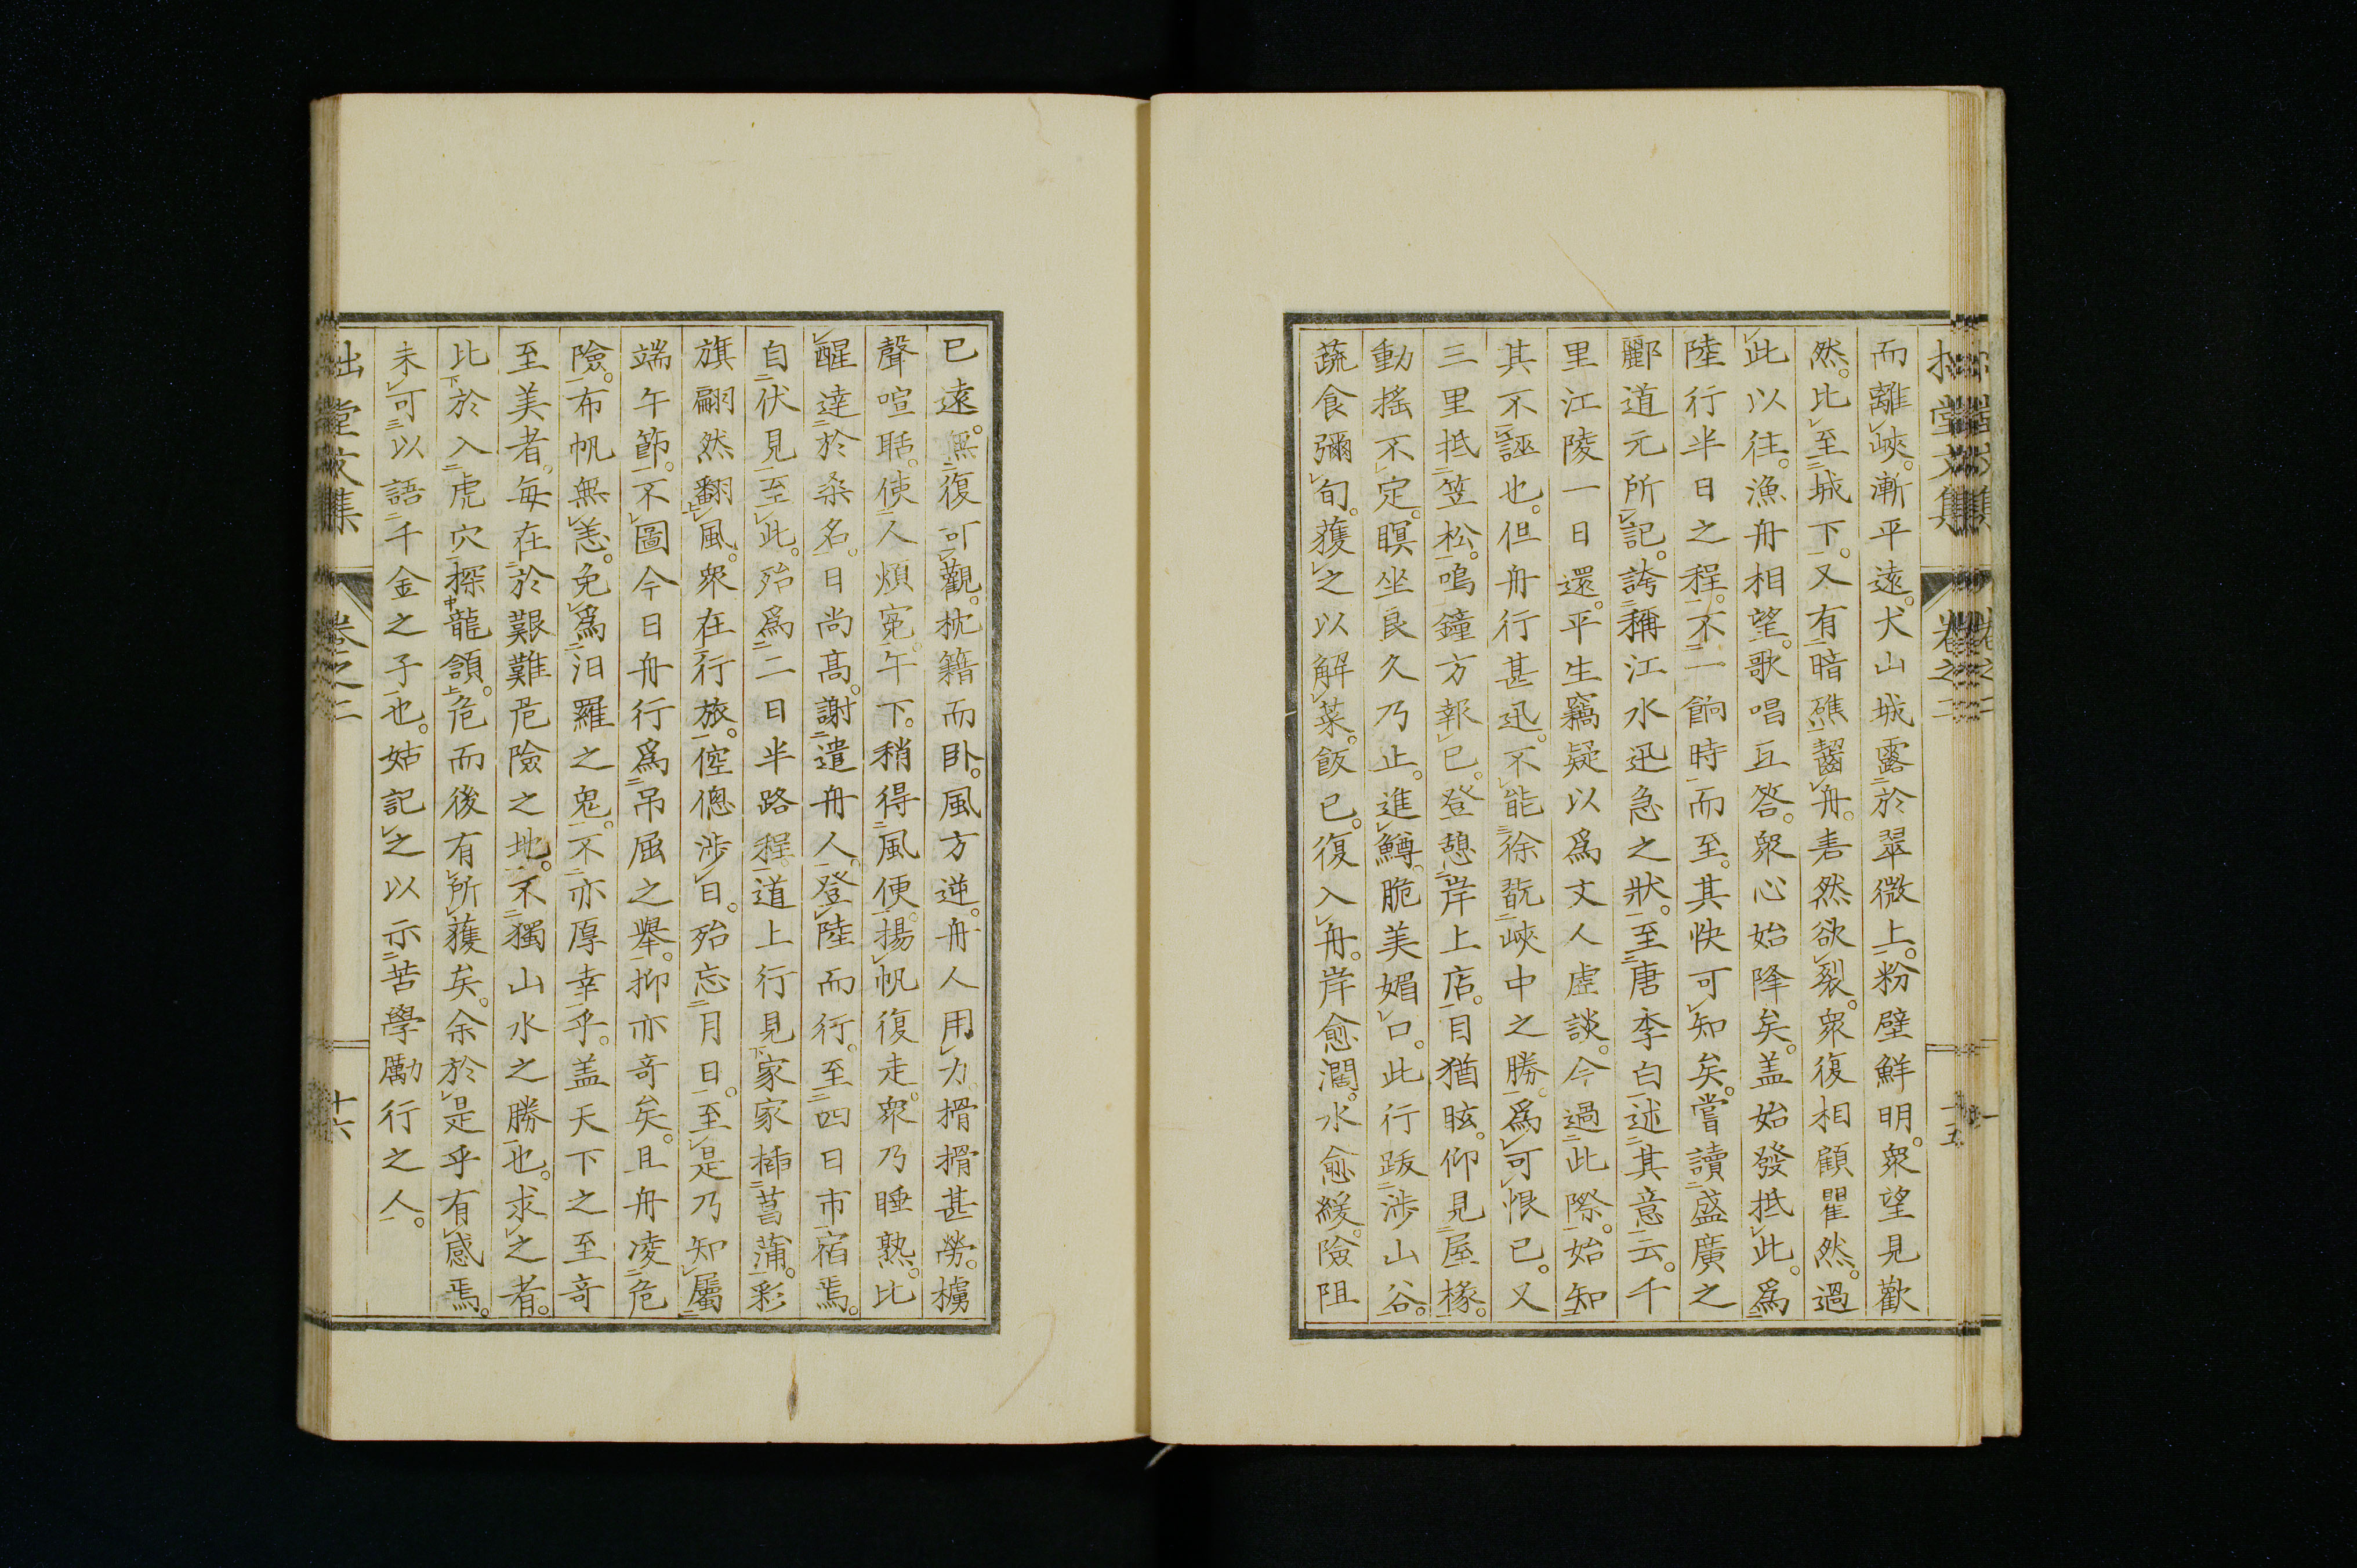 而離峽。漸平遠。犬山城露於翠微上。粉壁鮮明。衆望見歡
然。比至城下。又有暗礁齧舟。砉然欲裂。衆復相顧瞿然。過
此以往。漁舟相望。歌唱互答。衆心始降矣。盖始發抵此。爲
陸行半日之程。不一餉時而至。其快可知矣。嘗讀盛廣之
酈道元所記。誇稱江水迅急之狀。至唐李白述其意云。千
里江陵一日還。平生竊疑以爲文人虛談。今過此際。始知
其不誣也。但舟行甚迅。不能徐翫峽中之勝。爲可恨已。又
三里抵笠松。鳴鐘方報巳。登憩岸上店。目猶眩。仰見屋椽。
動搖不定。瞑坐良久乃止。進鱒。脆美媚口。此行跋涉山谷。
蔬食彌旬。獲之以解菜。飯已。復入舟。岸愈濶。水愈緩。險阻
已遠。無復可觀。枕籍而臥。風方逆。舟人用力搰搰甚勞。櫓
聲喧聒。使人煩寃。午下。稍得風便。揚帆復走。衆乃睡熟。比
醒達於桑名。日尚髙。謝遣舟人。登陸而行。至四日市宿焉。
自伏見至此。殆爲二日半路程。道上行見家家揷菖蒲。彩
旗翩然翻風。衆在行旅。倥傯涉日。殆忘月日。至是乃知屬
端午節。不圖今日舟行爲吊屈之擧。抑亦奇矣。且舟凌危
險。布帆無恙。免爲汨羅之鬼。不亦厚幸乎。盖天下之至奇
至美者。每在於艱難危險之地。不獨山水之勝也。求之者。
比於入虎穴探龍頷。危而後有所獲矣。余於是乎有感焉。
未可以語千金之子也。姑記之以示苦學勵行之人。
拙堂文集 卷之二 十六